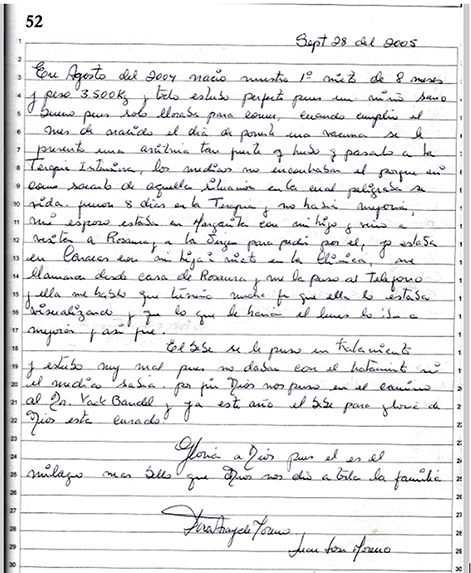 52
Sept 28 del 2005
En Agosto del 2004 nacio nuestro 1º nieto de 8 meses
y peso 3.500Kg y todo estubo perfecto pues un niño sano
bueno pues solo lloraba para comer, cuando cumplio el
mes de nacido el dia de ponerle una vacuna se le
presento una aritmia tan fuerte q hubo q pasarlo a la
Terapia Intensiva, los medicos no encontraban el porque ni
como sacarlo de aquella situacion en la cual peligraba su
vida. fueron 8 dias en la Terapia y no habia mejoria,
mi esposo estaba en Margarita con mi hijo y vino a
visitar a Rosaura y a la Virgen para pedir por el, yo estaba
en Caracas con mi hija y nieto en la Clinica, me
llamaron desde casa de Rosaura y me la puso al Telefono
y ella me hablo que tuviera mucha fe que ella lo estaba
visualizando y que lo que le harian el lunes lo iba a
mejorar y asi fue.
El bebe se le puso un tratamiento
y estubo muy mal pues no daban con el tratamiento ni
el medico sabia. por fin Dios nos puso en el camino
al Dr. y ya este año el bebe para gloria de
Dios esta curado.
Gloria a Dios pues el es el
milagro mas bello que Dios nos dio a toda la familia
de Moreno
Juan Jose Moreno